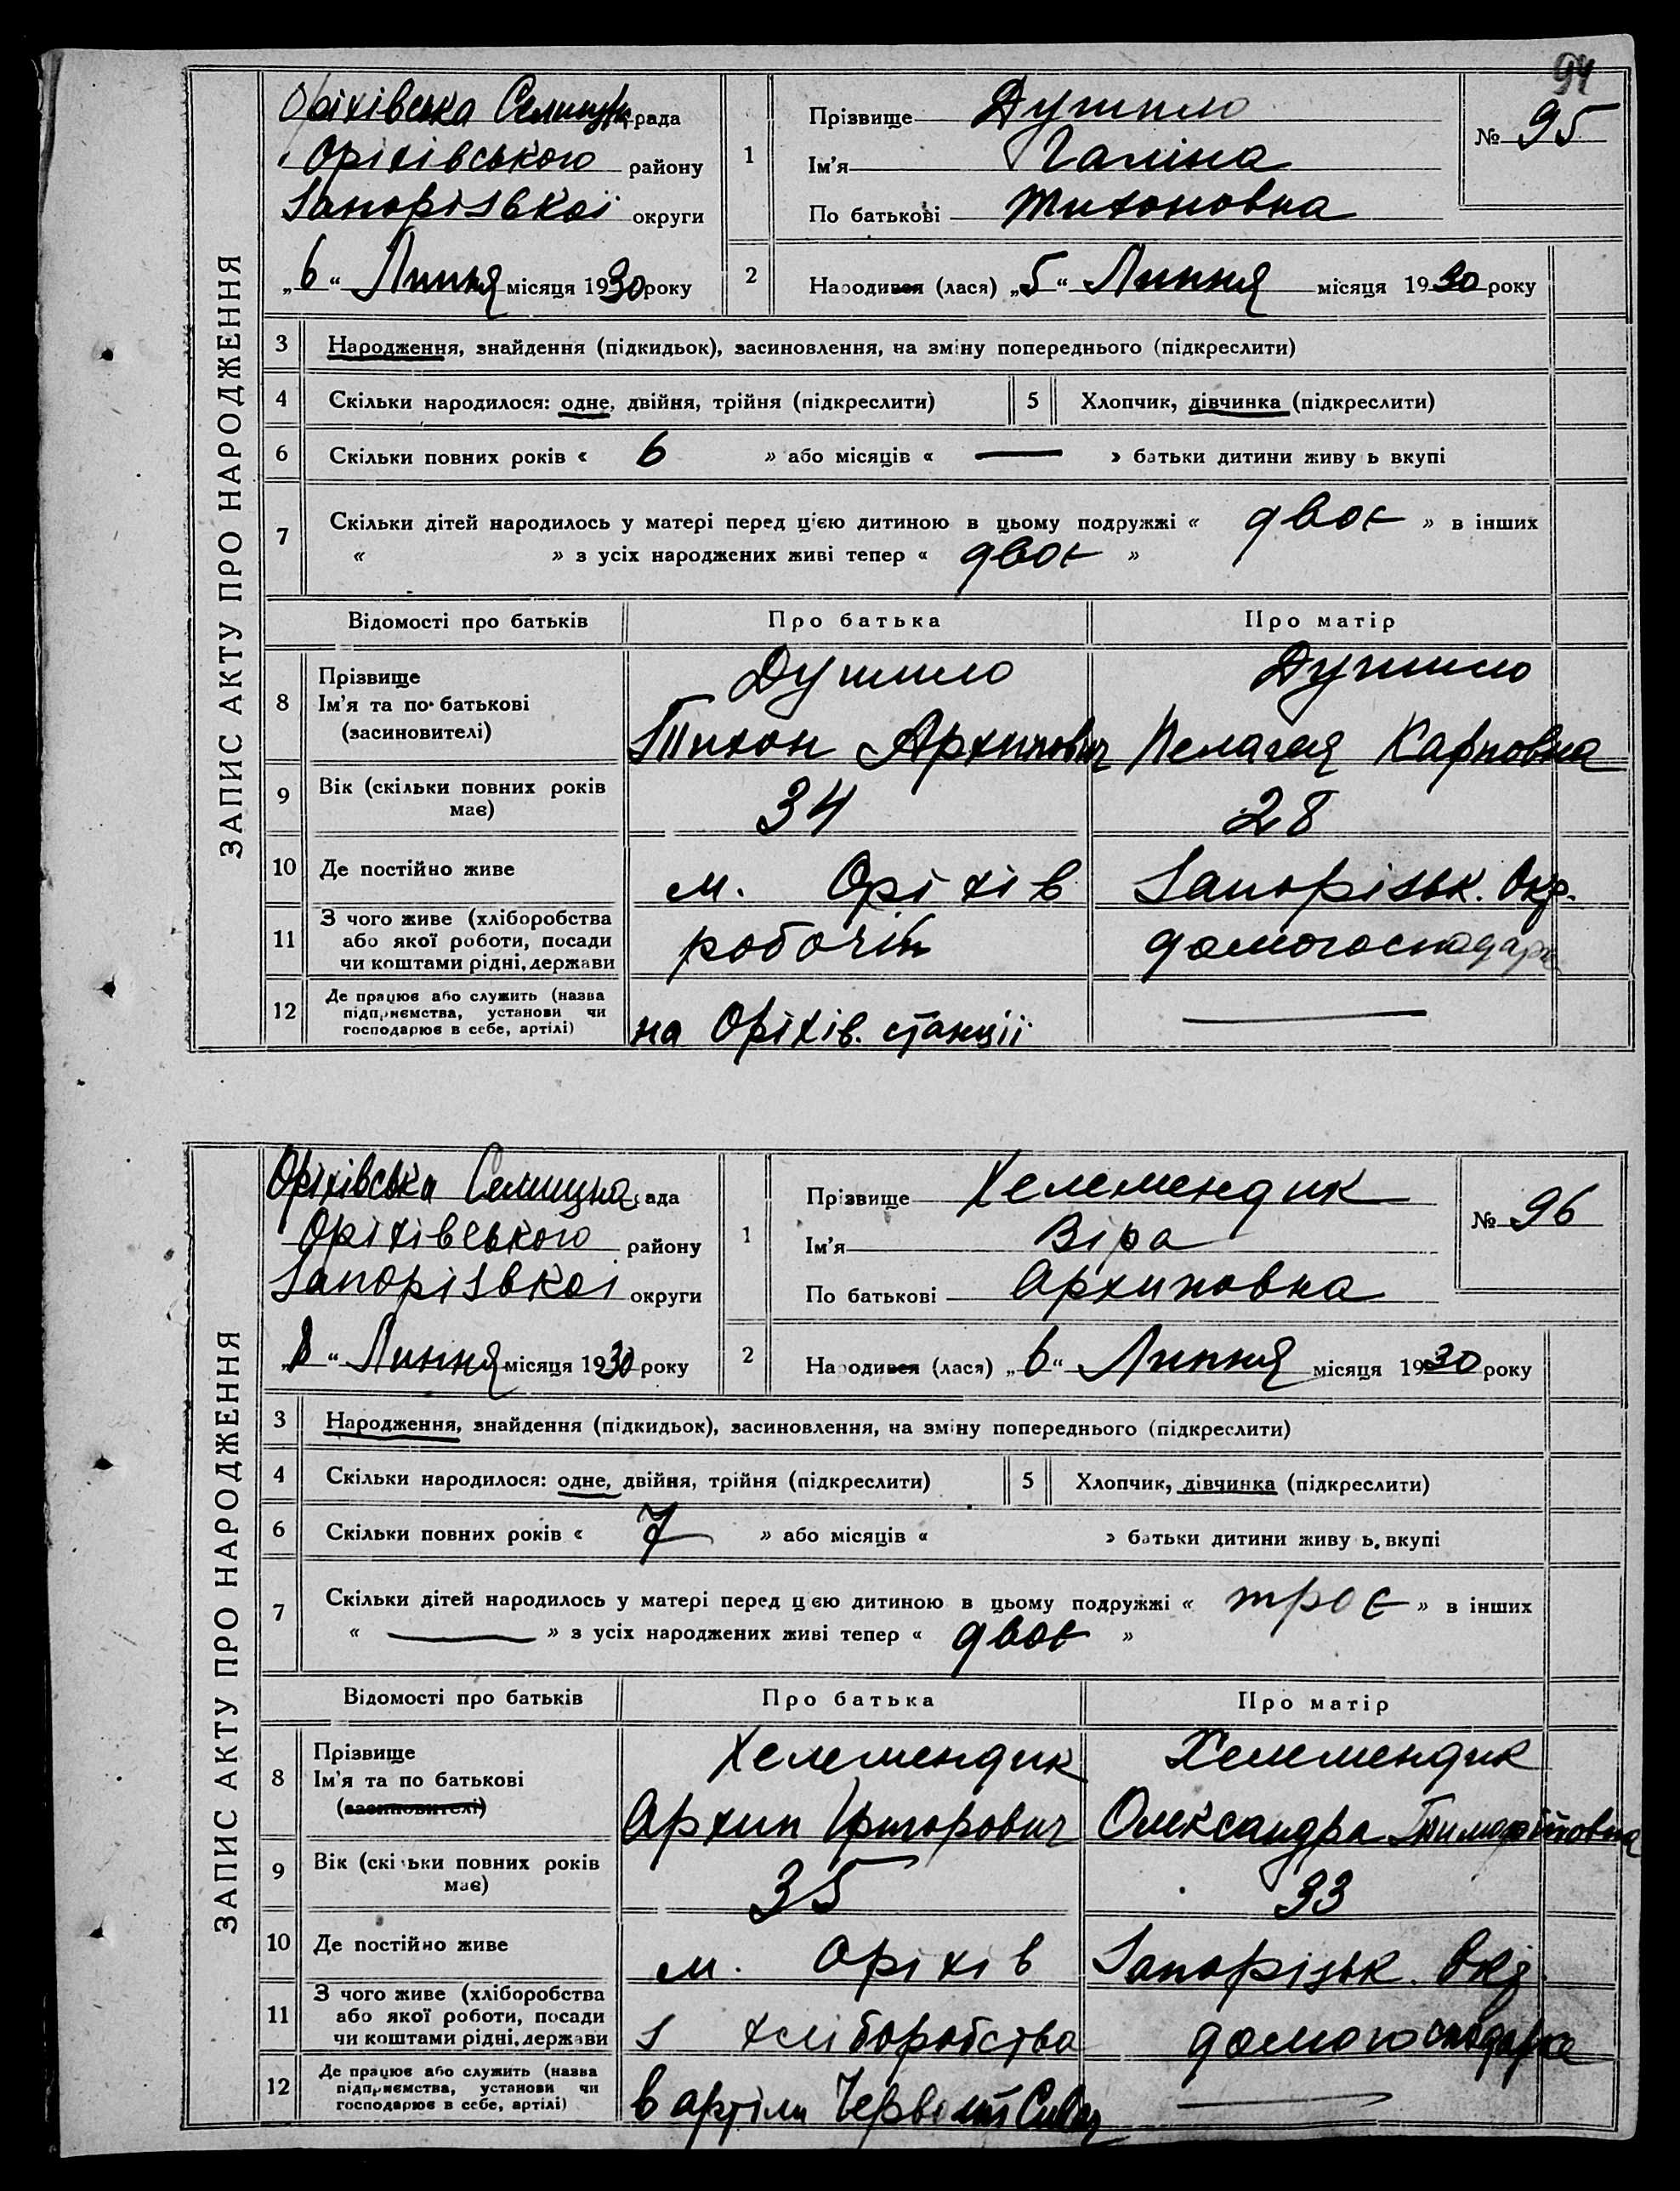 94
ЗАПИС АКТУ ПРО НАРОДЖЕННЯ
Оріхівська Селищн. рада
Оріхівського району
Запорізької округи
„6“ Липня місяця 1930 року
1
Прізвище
Ім'я Галіна
По батькові Тихоновна
№ 95
2 Народився (лася) „5“ Липня місяця 1930 року
3 Народження, знайдення (підкидьок), засиновлення, на зміну попереднього (підкреслити)
4 Скільки народилося: одне, двійня, трійня (підкреслити) 5 Хлопчик, дівчинка (підкреслити)
6 Скільки повних років « 6 » або місяців « — » батьки дитини живу ь вкупі
7 Скільки дітей народилось у матері перед цією дитиною в цьому подружжі « двоє » в інших
« » з усіх народжених живі тепер « двоє »
Відомості про батьків Про батька Про матір
8 Прізвище
Ім'я та по батькові
(засиновителі)
Тихон Архипович Пелагея Карповна
9 Вік (скільки повних років
має)
34 28
10 Де постійно живе м. Оріхів Запорізьк. Окр.
11 З чого живе (хліборобства
або якої роботи, посади
чи коштами рідні, держави
робочий домогосподарка
12 Де працює або служить (назва
підприємства, установи чи
господарює в себе, артілі)
на Оріхів. станції —
ЗАПИС АКТУ ПРО НАРОДЖЕННЯ
Оріхівська Селищна рада
Оріхівського району
Запорізької округи
„8“ Липня місяця 1930 року
1
Прізвище Хелемендик
Ім'я Віра
По батькові Архиповна
№ 96
2 Народився (лася) „6“ Липня місяця 1930 року
3 Народження, знайдення (підкидьок), засиновлення, на зміну попереднього (підкреслити)
4 Скільки народилося: одне, двійня, трійня (підкреслити) 5 Хлопчик, дівчинка (підкреслити)
6 Скільки повних років « 7 » або місяців « » батьки дитини живу ь вкупі
7 Скільки дітей народилось у матері перед цією дитиною в цьому подружжі « троє » в інших
« — » з усіх народжених живі тепер « двоє »
Відомості про батьків Про батька Про матір
8 Прізвище
Ім'я та по батькові
(засиновителі)
Хелемендик Хелемендик
Архип Григорович Олександра
9 Вік (скільки повних років
має)
35 33
10 Де постійно живе м. Оріхів Запорізьк. Окр.
11 З чого живе (хліборобства
або якої роботи, посади
чи коштами рідні, держави
з хліборобства домогосподарка
12 Де працює або служить (назва
підприємства, установи чи
господарює в себе, артілі)
в артіли Червоний —